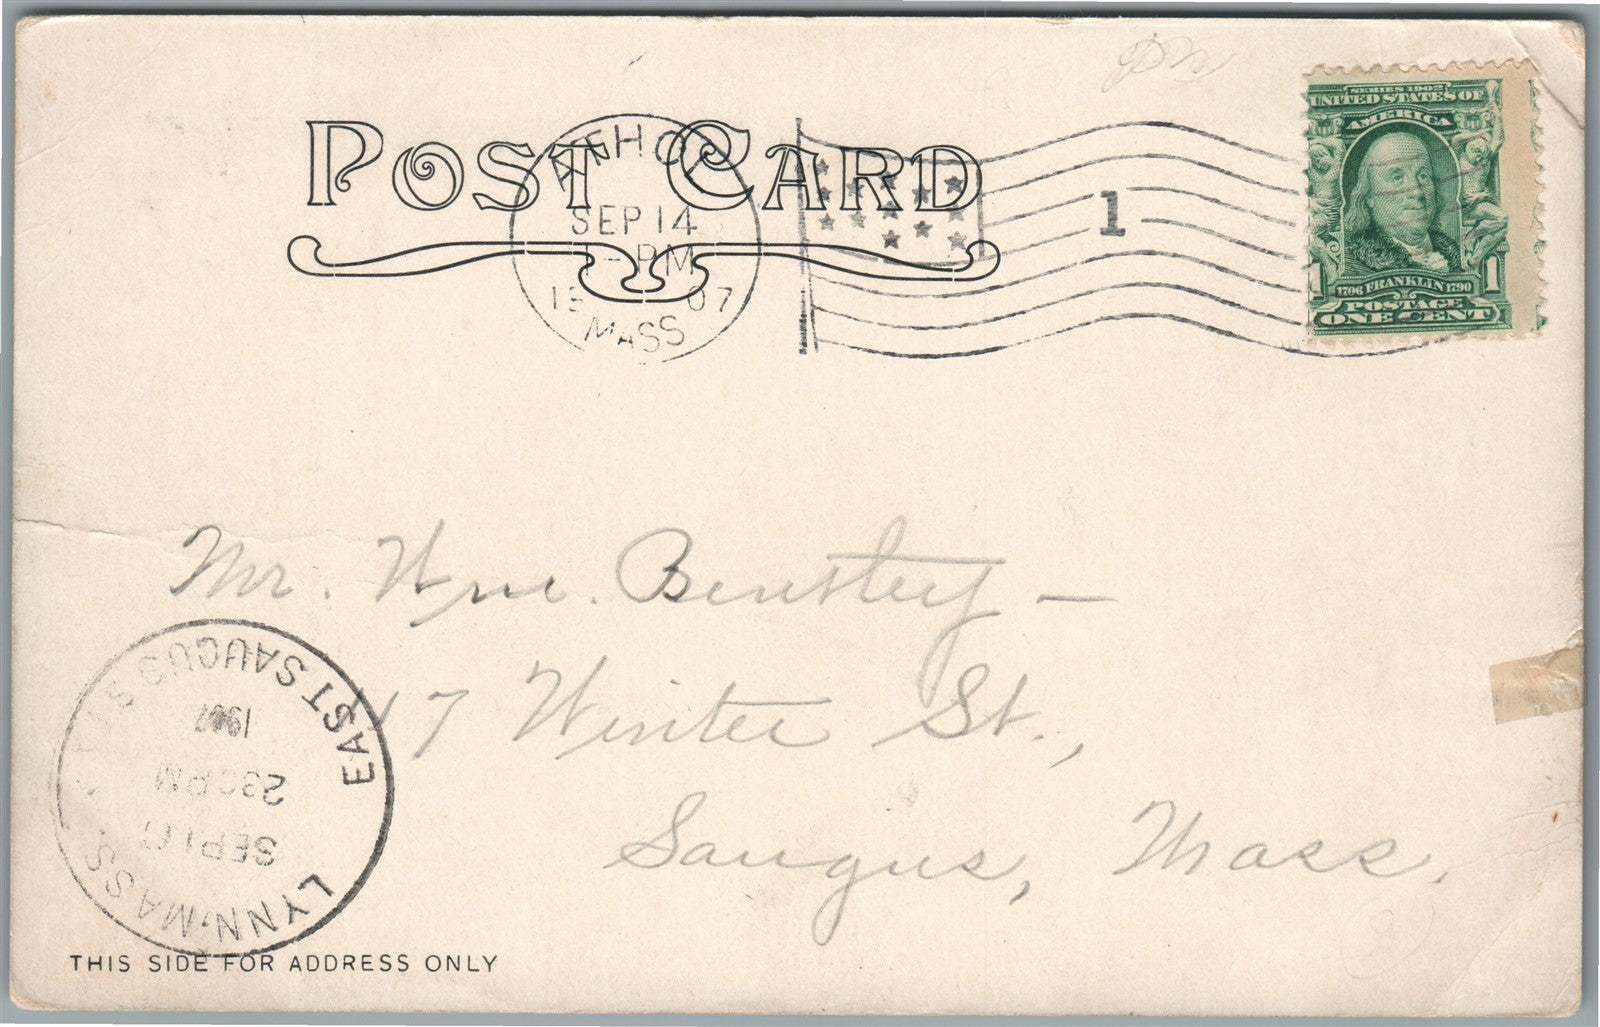 POST CARD
ATHOL
SEP 14
-PM
1907
MASS
1
SERIES 1902
UNITED STATES OF
AMERICA
1706 FRANKLIN 1790
1 1
POSTAGE
ONE CENT
Mr. Wm. Benstey —
17 Winter St.,
Saugus, Mass.
EAST SAUGUS STA.
1907
230PM
SEP 16
LYNN, MASS.
THIS SIDE FOR ADDRESS ONLY